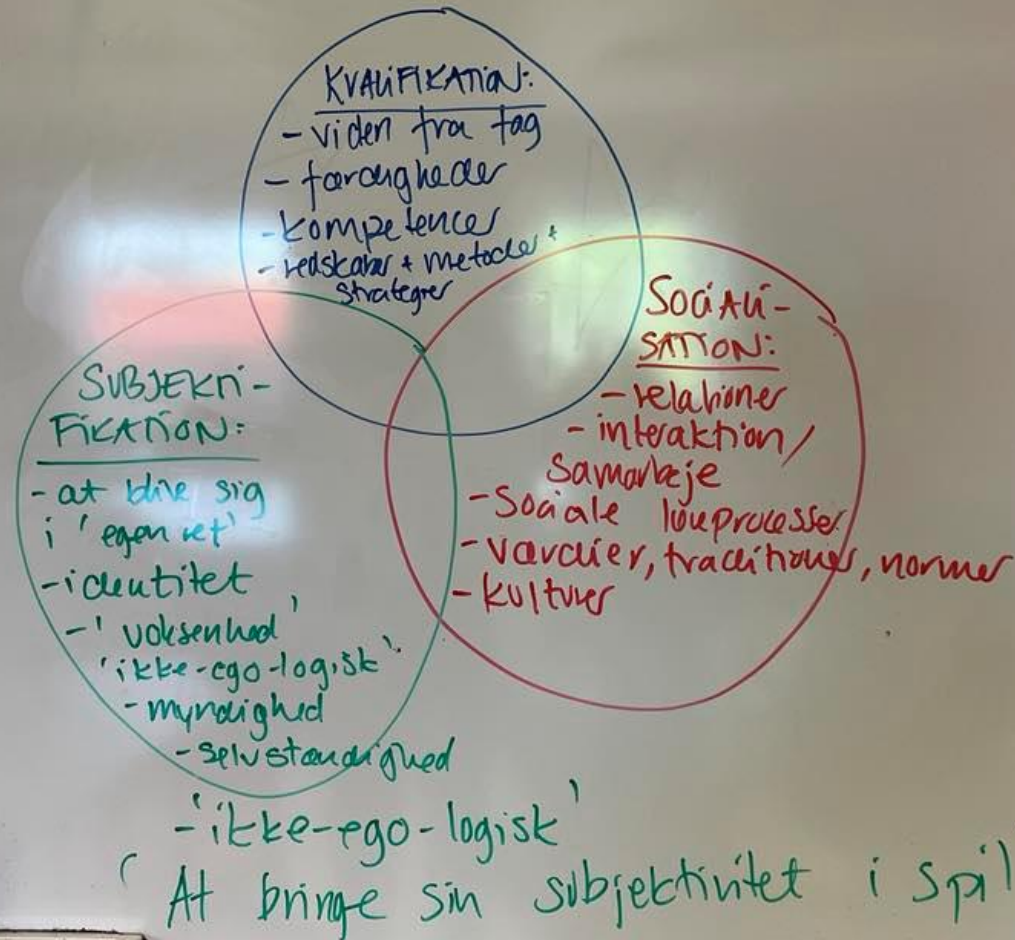 KVALIFIKATION:
- viden fra fag
- færdigheder
- kompetencer
- redskaber + metoder +
strategier
SOCIALI-
SATION:
- relationer
- interaktion/
samarbeje
- Sociale læreprocesser
- værdier, traditioner, normer
- kulturer
SUBJEKTI-
FIKATION:
- at blive sig
i 'egen ret'
- identitet
- 'voksenhed'
'ikke-ego-logisk'
- myndighed
- selvstændighed
- 'ikke-ego-logisk'
( At bringe sin subjektivitet i spil